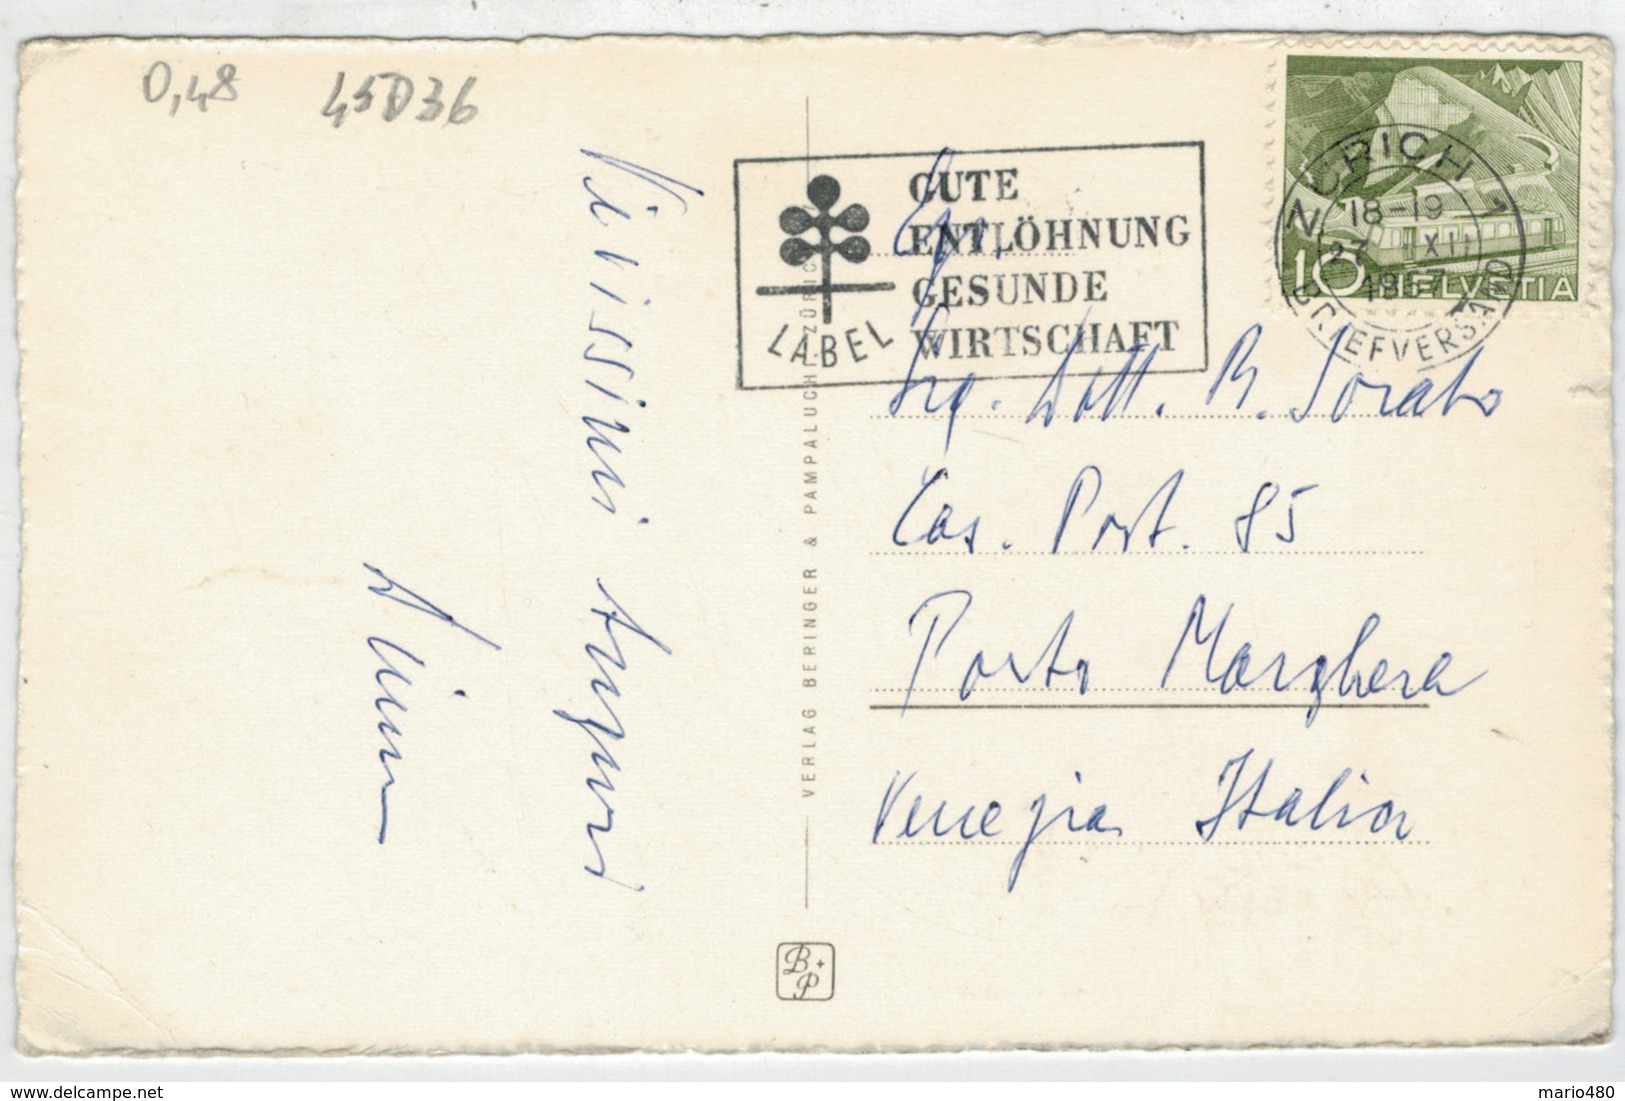 0,48 45D36
Vivissimi Auguri
GUTE
ENTLÖHNUNG
GESUNDE
WIRTSCHAFT
LABEL
ZÜRICH 1
18-19
27 XII
1957
BRIEFVERSAND
10 HELVETIA
VERLAG BERINGER & PAMPALUCHI ZÜRICH
Egr.
Sig. Dott. B. Sorato
Cas. Post. 85
Porto Marghera
Venezia Italia
B+P
mario480
delcampe.net